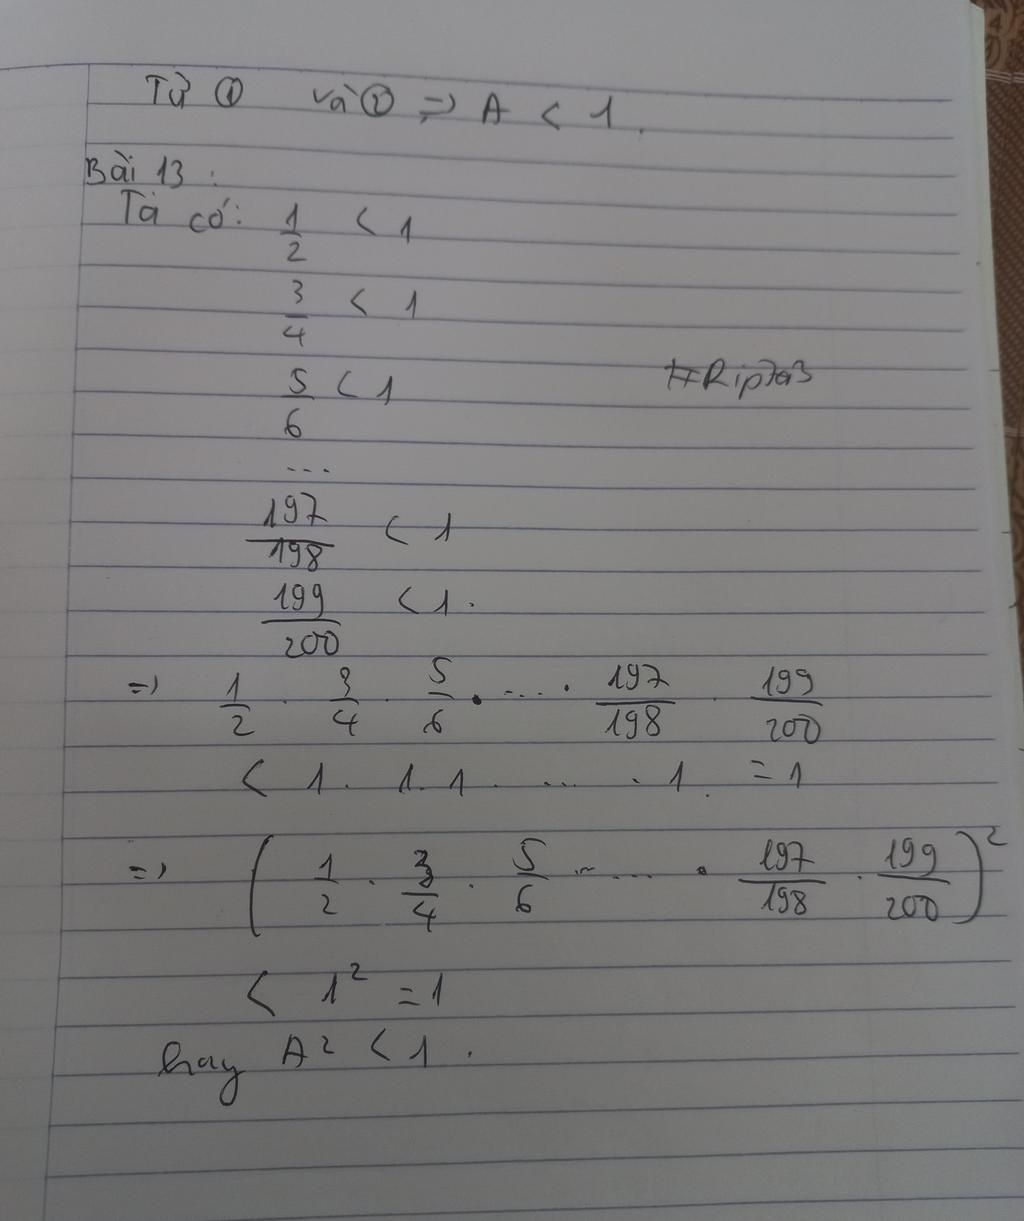 Từ ① và ② => A < 1.
Bài 13 :
Ta có: 1/2 < 1
3/4 < 1
5/6 < 1
#Ripza3
...
197/198 < 1
199/200 < 1.
=> 1/2 . 3/4 . 5/6 . .... . 197/198 . 199/200
< 1 . 1 . 1 . ... . 1 . = 1
=> ( 1/2 . 3/4 . 5/6 . .... . 197/198 . 199/200 )²
< 1² = 1
hay A² < 1 .